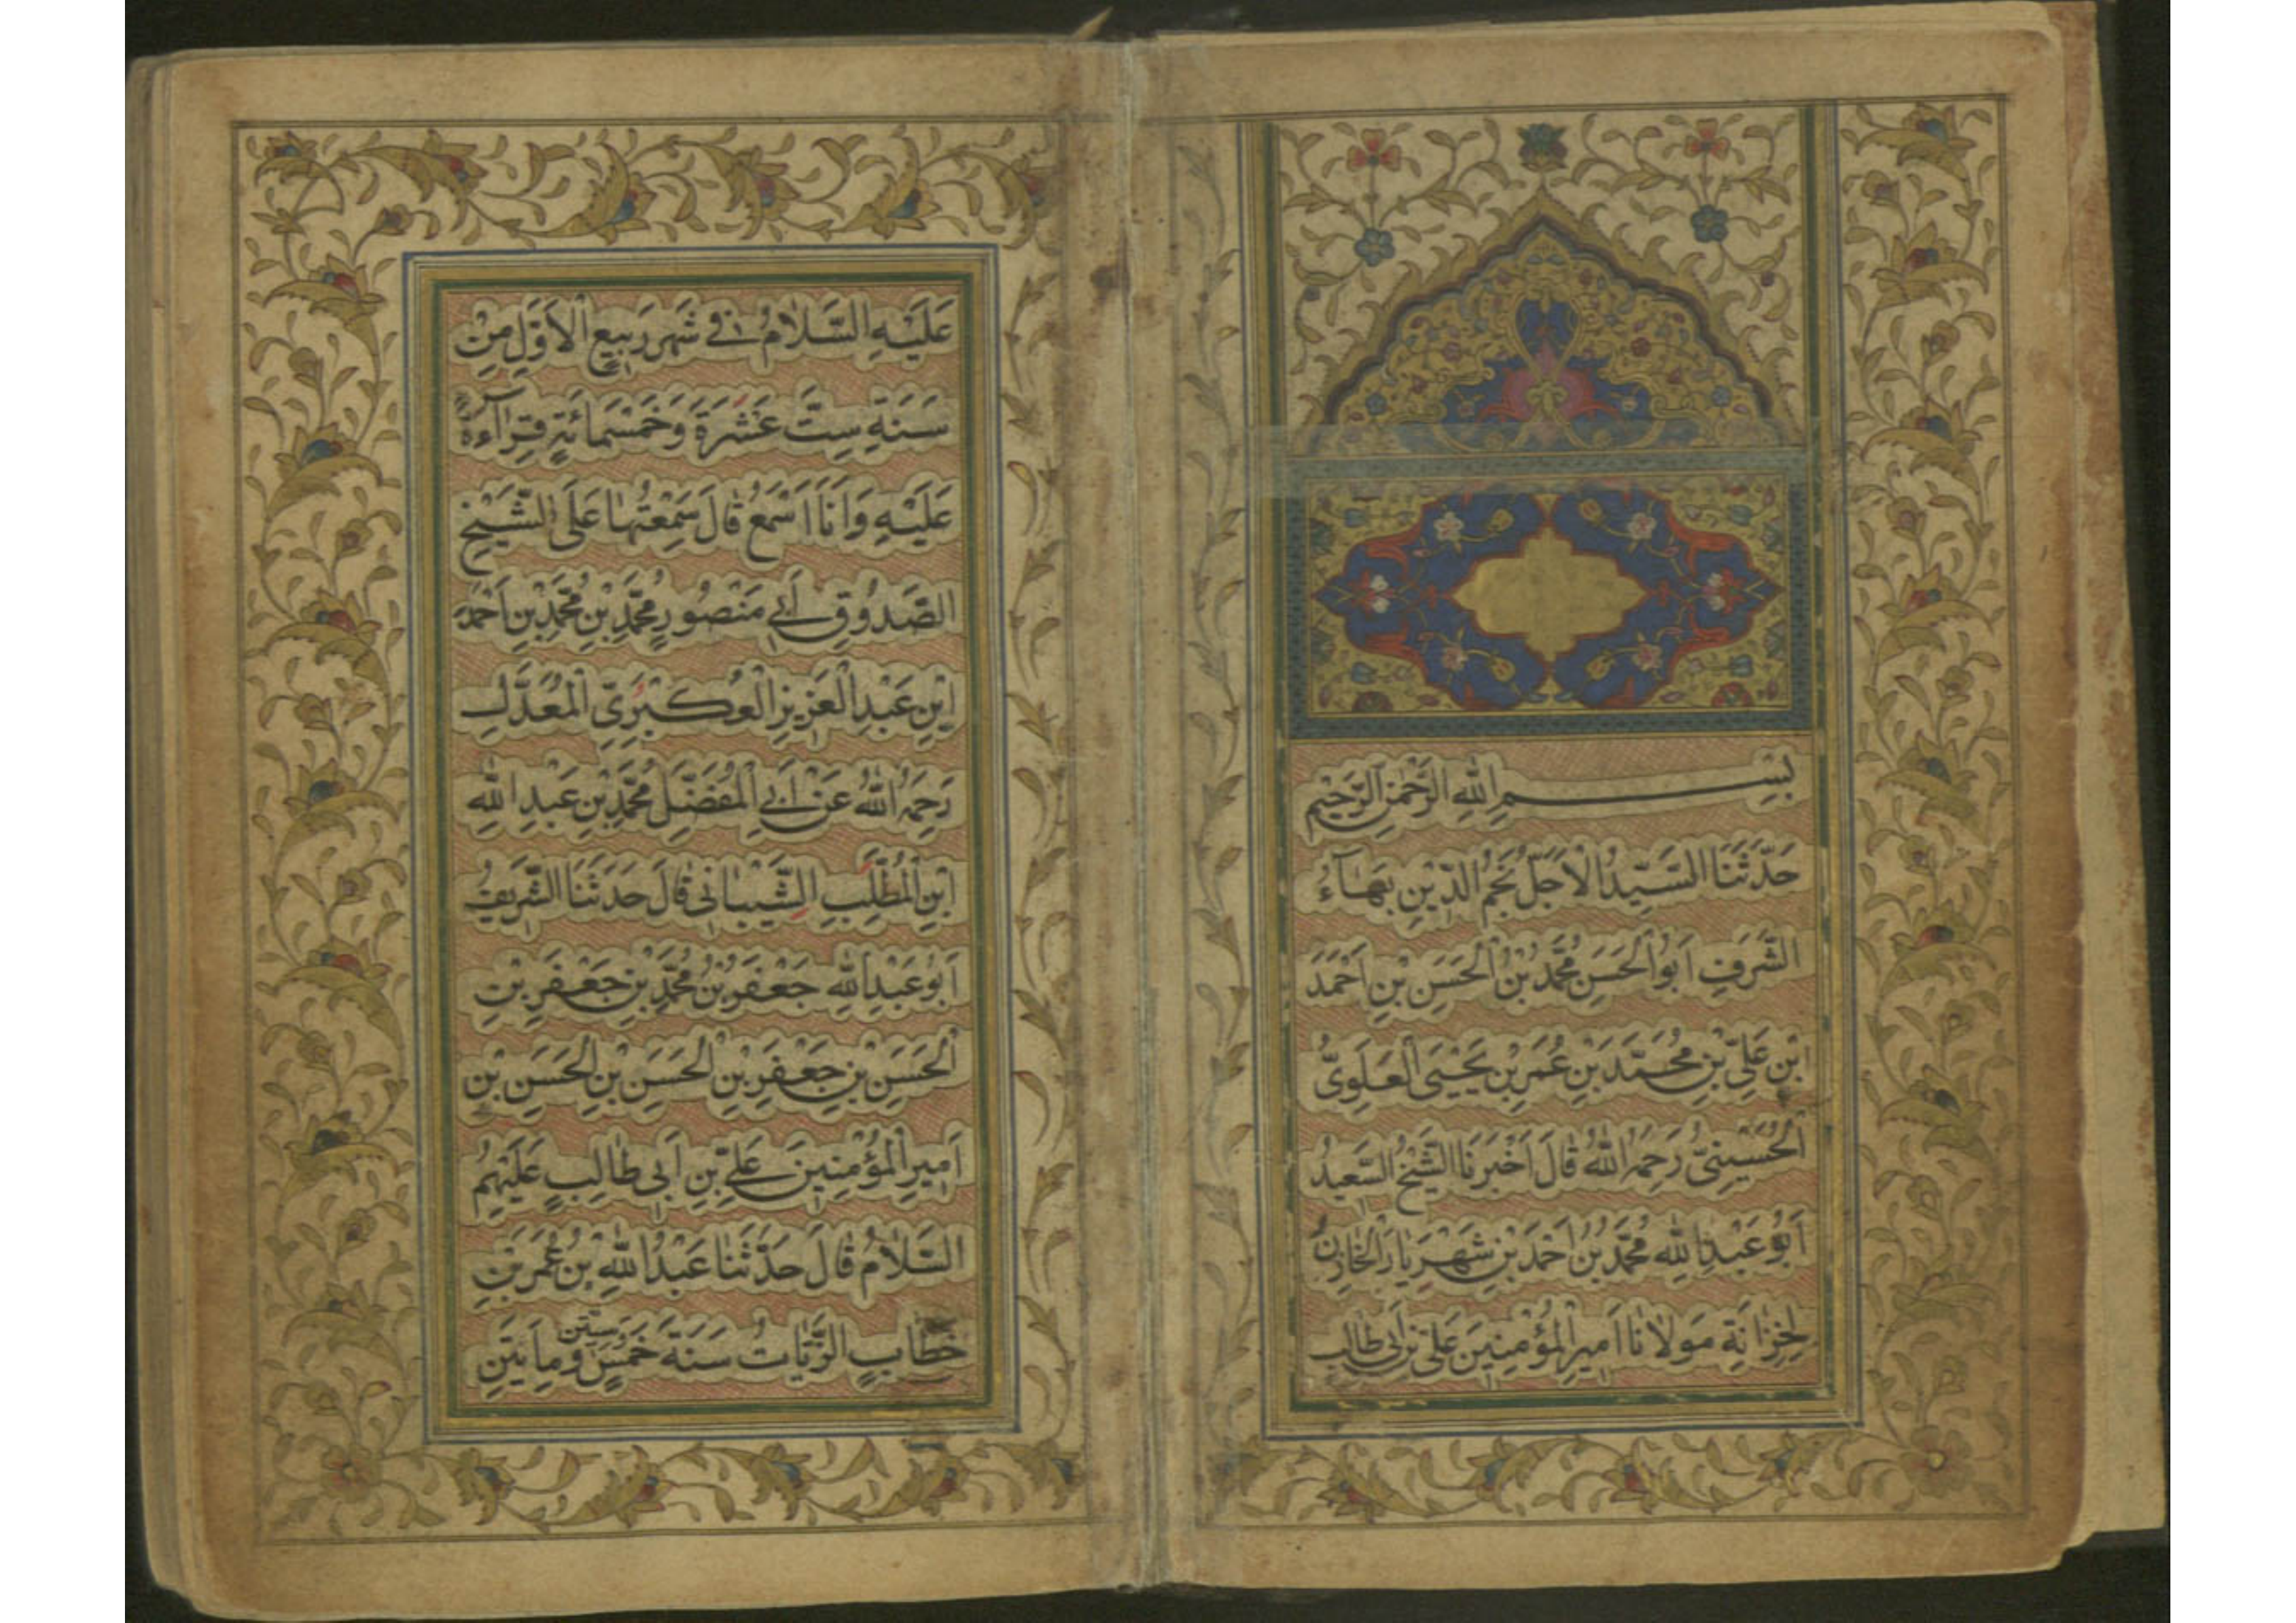 بِسْمِ اللهِ الرَّحْمٰنِ الرَّحِيمِ
حَدَّثَنَا السَّيِّدُ الْاَجَلُّ نَجْمُ الدِّينِ بَهَآءُ
الشَّرَفِ اَبُو الْحَسَنِ مُحَمَّدُ بْنُ الْحَسَنِ بْنِ اَحْمَدَ
ابْنِ عَلِيِّ بْنِ مُحَمَّدَ بْنِ عُمَرَ بْنِ يَحْيَى الْعَلَوِيُّ
الْحُسَيْنِيُّ رَحِمَهُ اللهُ قَالَ اَخْبَرَنَا الشَّيْخُ السَّعِيدُ
اَبُو عَبْدِ اللهِ مُحَمَّدُ بْنُ اَحْمَدَ بْنِ شَهْرَيَارَ الْخَازِنُ
لِخِزَانَةِ مَوْلَانَا اَمِيرِ الْمُؤْمِنِينَ عَلِيِّ بْنِ اَبِي طَالِبٍ
عَلَيْهِ السَّلَامُ فِي شَهْرِ رَبِيعِ الْاَوَّلِ مِنْ
سَنَةِ سِتَّ عَشْرَةَ وَخَمْسَمِائَةٍ قِرَآءَةً
عَلَيْهِ وَاَنَا اَسْمَعُ قَالَ سَمِعْتُهَا عَلَى الشَّيْخِ
الصَّدُوقِ اَبِي مَنْصُورٍ مُحَمَّدِ بْنِ مُحَمَّدِ بْنِ اَحْمَدَ
ابْنِ عَبْدِ الْعَزِيزِ الْعُكْبَرِيِّ الْمُعَدَّلِ
رَحِمَهُ اللهُ عَنْ اَبِي الْمُفَضَّلِ مُحَمَّدِ بْنِ عَبْدِ اللهِ
ابْنِ الْمُطَّلِبِ الشَّيْبَانِي قَالَ حَدَّثَنَا الشَّرِيفُ
اَبُو عَبْدِ اللهِ جَعْفَرُ بْنُ مُحَمَّدِ بْنِ جَعْفَرِ بْنِ
الْحَسَنِ بْنِ جَعْفَرِ بْنِ الْحَسَنِ بْنِ الْحَسَنِ بْنِ
اَمِيرِ الْمُؤْمِنِينَ عَلِيِّ بْنِ اَبِي طَالِبٍ عَلَيْهِمُ
السَّلَامُ قَالَ حَدَّثَنَا عَبْدُ اللهِ بْنُ عُمَرَ بْنِ
خَطَّابٍ الزَّيَّاتُ سَنَةَ خَمْسٍ وَسِتِّينَ وَمِايَتَيْنِ